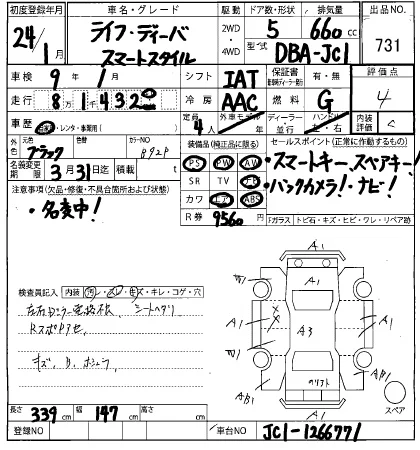 初度登録年月 車名・グレード 駆動 ドア数・形状 排気量 出品NO
24年 1月 ライフ・ディーバ スマートスタイル 2WD・4WD 5 660cc 731
型式 DBA-JC1
車検 9年 1月 シフト IAT 保証書 有・無 評価点
走行 8万1千432 冷房 AAC 燃料 G 4
車歴 自家・レンタ・事業用( ) 定員 4人 外車モデル年式 ディーラー・並行 ハンドル 左・右 内装評価 C
外色 元色 ブラック カラーNO 892P
装備品(純正品に限る) セールスポイント(正常に作動するもの)
PS PW AW
・スマートキー、スペアキー!
名義変更期限 3月31日迄 積載 t
SR TV ナビ
・バックカメラ!・ナビ!
注意事項(欠品・修復・不具合箇所および状態)
カワ エア ABS
・名変中!
R券 9560円
Fガラス トビ石・キズ・ヒビ・ワレ・リペア跡
A1
A1
検査員記入 内装 汚・スレ・キズ・キレ・コゲ・穴
シートヘタリ
A1
A3
A1
リフト
A1
スペア
長さ 339cm 幅 147cm 高さ cm
登録NO 車台NO JC1-1266771